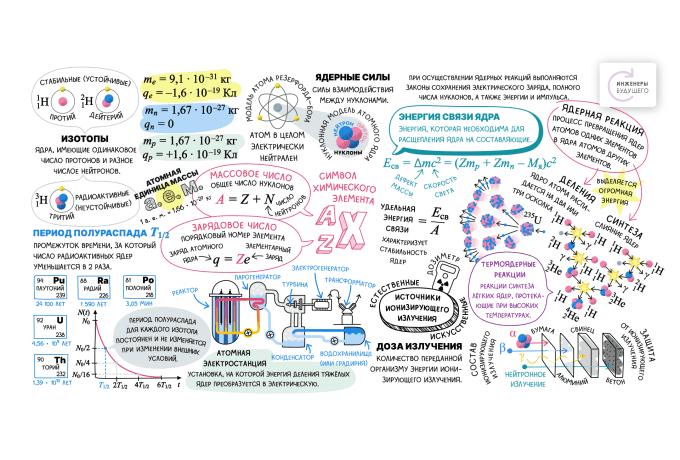 СТАБИЛЬНЫЕ (УСТОЙЧИВЫЕ)
¹₁H ²₁H
ПРОТИЙ ДЕЙТЕРИЙ
ИЗОТОПЫ
ЯДРА, ИМЕЮЩИЕ ОДИНАКОВОЕ
ЧИСЛО ПРОТОНОВ И РАЗНОЕ
ЧИСЛОЕ НЕЙРОНОВ.
³₁H
РАДИОАКТИВНЫЕ
(НЕУСТОЙЧИВЫЕ)
ТРИТИЙ
mₑ = 9,1 · 10⁻³¹ кг
qₑ = –1,6 · 10⁻¹⁹ Кл
mₙ = 1,67 · 10⁻²⁷ кг
qₙ = 0
mₚ = 1,67 · 10⁻²⁷ кг
qₚ = +1,6 · 10⁻¹⁹ Кл
АТОМНАЯ
ЕДИНИЦА МАССЫ
а. е. м.
1 а. е. м. = 1,66 · 10⁻²⁷ кг
МОДЕЛЬ АТОМА РЕЗЕРФОРДА–БОРА
АТОМ В ЦЕЛОМ
ЭЛЕКТРИЧЕСКИ
НЕЙТРАЛЕН
ЯДЕРНЫЕ СИЛЫ
СИЛЫ ВЗАИМОДЕЙСТВИЯ
МЕЖДУ НУКЛОНАМИ.
НУКЛОННАЯ МОДЕЛЬ АТОМНОГО ЯДРА
НУКЛОНЫ
МАССОВОЕ ЧИСЛО
ОБЩЕЕ ЧИСЛО НУКЛОНОВ
A = Z + N
ЧИСЛО
НЕЙТРОНОВ
ЗАРЯДОВОЕ ЧИСЛО
ПОРЯДКОВЫЙ НОМЕР ЭЛЕМЕНТА
ЗАРЯД АТОМНОГО
ЯДРА
ЭЛЕМЕНТАРНЫЙ
ЗАРЯД
q = Ze
СИМВОЛ
ХИМИЧЕСКОГО
ЭЛЕМЕНТА
A
Z
X
ПРИ ОСУЩЕСТВЛЕНИИ ЯДЕРНЫХ РЕАКЦИЙ ВЫПОЛНЯЮТСЯ
ЗАКОНЫ СОХРАНЕНИЯ ЭЛЕКТРИЧЕСКОГО ЗАРЯДА, ПОЛНОГО
ЧИСЛА НУКЛОНОВ, А ТАКЖЕ ЭНЕРГИИ И ИМПУЛЬСА.
ЭНЕРГИЯ СВЯЗИ ЯДРА
ЭНЕРГИЯ, КОТОРАЯ НЕОБХОДИМА ДЛЯ
РАСЩЕПЛЕНИЯ ЯДРА НА СОСТАВЛЯЮЩИЕ.
Eсв = Δmc² = (Zmₚ + Zmₙ – Mя)c²
ДЕФЕКТ
МАССЫ
СКОРОСТЬ
СВЕТА
УДЕЛЬНАЯ
ЭНЕРГИЯ
СВЯЗИ
= Eсв/A
ХАРАКТЕРИЗУЕТ
СТАБИЛЬНОСТЬ
ЯДЕР
ИНЖЕНЕРЫ
БУДУЩЕГО
ЯДЕРНАЯ РЕАКЦИЯ
ПРОЦЕСС ПРЕВРАЩЕНИЯ ЯДЕР
АТОМОВ ОДНИХ ЭЛЕМЕНТОВ
В ЯДРА АТОМОВ ДРУГИХ
ЭЛЕМЕНТОВ.
ДЕЛЕНИЯ
ЯДРО АТОМА РАСПА-
ДАЕТСЯ НА ДВА ИЛИ
ТРИ ОСКОЛКА
²³⁵U
ВЫДЕЛЯЕТСЯ
ОГРОМНАЯ
ЭНЕРГИЯ
СИНТЕЗА
СЛИЯНИЕ ЯДЕР
¹H
²H
³He
⁴He
ТЕРМОЯДЕРНЫЕ
РЕАКЦИИ
РЕАКЦИИ СИНТЕЗА
ЛЕГКИХ ЯДЕР, ПРОТЕКА-
ЮЩИЕ ПРИ ВЫСОКИХ
ТЕМПЕРАТУРАХ.
ПЕРИОД ПОЛУРАСПАДА T₁/₂
ПРОМЕЖУТОК ВРЕМЕНИ, ЗА КОТОРЫЙ
ЧИСЛО РАДИОАКТИВНЫХ ЯДЕР
УМЕНЬШАЕТСЯ В 2 РАЗА.
94 Pu
ПЛУТОНИЙ
239
24 100 ЛЕТ
88 Ra
РАДИЙ
226
1 590 ЛЕТ
81 Po
ПОЛОНИЙ
218
3,05 МИН
92 U
УРАН
238
4,56 · 10⁹ ЛЕТ
90 Th
ТОРИЙ
232
1,39 · 10¹⁰ ЛЕТ
N(t)
N₀
N₀/2
N₀/4
N₀/16
T₁/₂ 2T₁/₂ 4T₁/₂ 6T₁/₂ t
ПЕРИОД ПОЛУРАСПАДА
ДЛЯ КАЖДОГО ИЗОТОПА
ПОСТОЯНЕН И НЕ ИЗМЕНЯЕТСЯ
ПРИ ИЗМЕНЕНИИ ВНЕШНИХ
УСЛОВИЙ.
РЕАКТОР
ПАРОГЕНЕРАТОР
ТУРБИНА
ЭЛЕКТРОГЕНЕРАТОР
ТРАНСФОРМАТОР
КОНДЕНСАТОР
ВОДОХРАНИЛИЩЕ
(ИЛИ ГРАДИРНЯ)
АТОМНАЯ
ЭЛЕКТРОСТАНЦИЯ
УСТАНОВКА, НА КОТОРОЙ ЭНЕРГИЯ ДЕЛЕНИЯ ТЯЖЕЛЫХ
ЯДЕР ПРЕОБРАЗУЕТСЯ В ЭЛЕКТРИЧЕСКУЮ.
ДОЗИМЕТР
ЕСТЕСТВЕННЫЕ
ИСТОЧНИКИ
ИОНИЗИРУЮЩЕГО
ИЗЛУЧЕНИЯ
ИСКУССТВЕННЫЕ
ДОЗА ИЗЛУЧЕНИЯ
КОЛИЧЕСТВО ПЕРЕДАННОЙ
ОРГАНИЗМУ ЭНЕРГИИ ИОНИ-
ЗИРУЮЩЕГО ИЗЛУЧЕНИЯ.
СОСТАВ
ИОНИЗИРУЮЩЕГО
ИЗЛУЧЕНИЯ
α
β
γ
НЕЙТРОННОЕ
ИЗЛУЧЕНИЕ
БУМАГА
СВИНЕЦ
АЛЮМИНИЙ
БЕТОН
ЗАЩИТА
ОТ ИОНИЗИРУЮЩЕГО
ИЗЛУЧЕНИЯ